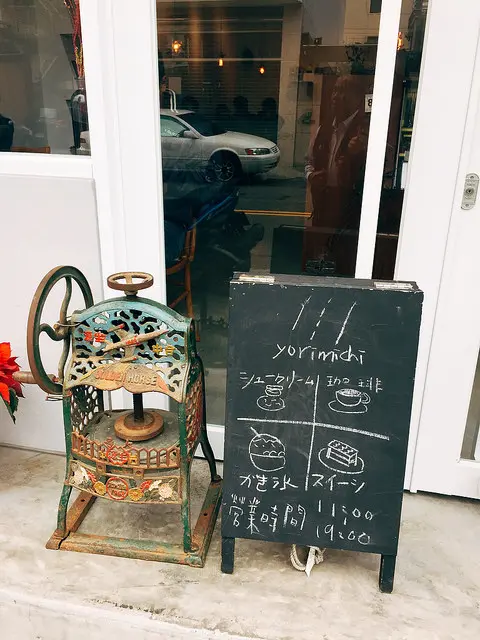 yorimichi
シュークリーム 珈琲
かき氷 スイーツ
営業時間 11:00
19:00
HORSE
8